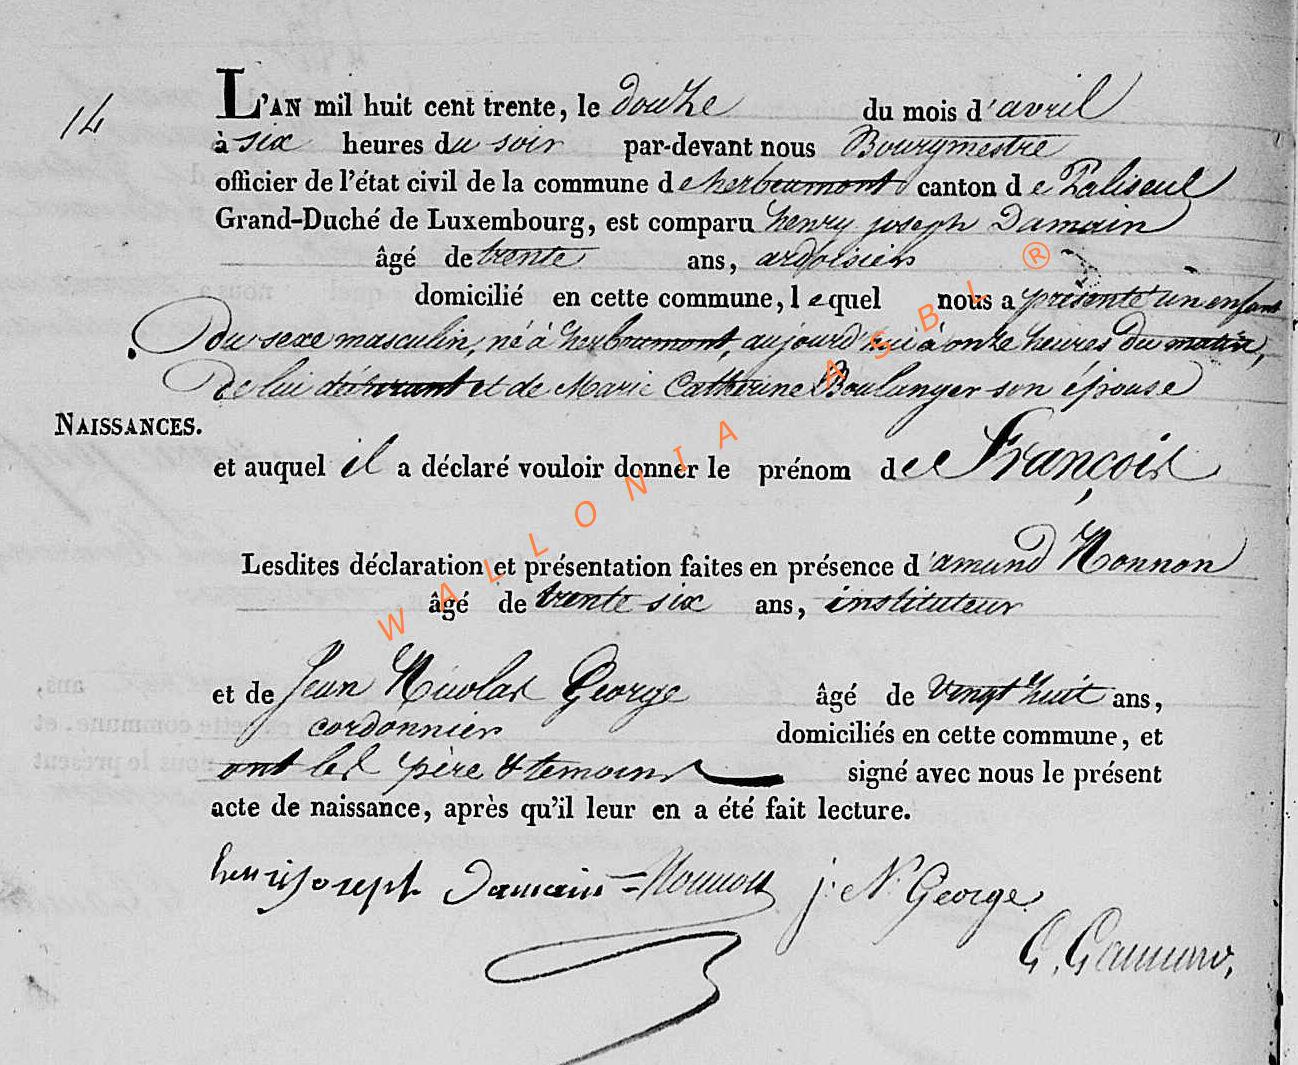 14
L'AN mil huit cent trente, le douze du mois d'avril
à six heures du soir par-devant nous Bourgmestre
officier de l'état civil de la commune de herbeumont canton de Paliseul
Grand-Duché de Luxembourg, est comparu henry joseph Damain
âgé de trente ans, ardoisier
domicilié en cette commune, lequel nous a présenté un enfant
du sexe masculin, né à herbeumont, aujourd'hui à onze heures du matin,
De lui déclarant et de Marie Catherine Boulanger son épouse
NAISSANCES.
et auquel il a déclaré vouloir donner le prénom de François
Lesdites déclaration et présentation faites en présence d'amand Nonnon
âgé de trente six ans, instituteur
et de Jean Nicolas George âgé de vingt huit ans,
cordonnier domiciliés en cette commune, et
ont les père & temoins signé avec nous le présent
acte de naissance, après qu'il leur en a été fait lecture.
henri joseph Damain Nonnon j. N. George
G.
WALLONIA ASBL ®